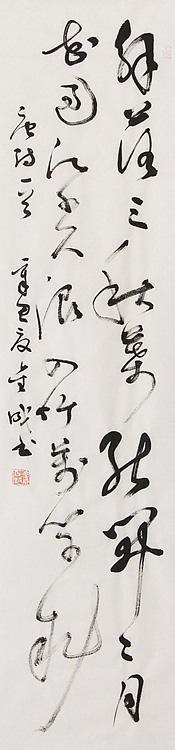 解落三秋葉能開二月
花過江千尺浪入竹萬竿斜
唐詩一首 辛丑夏 書